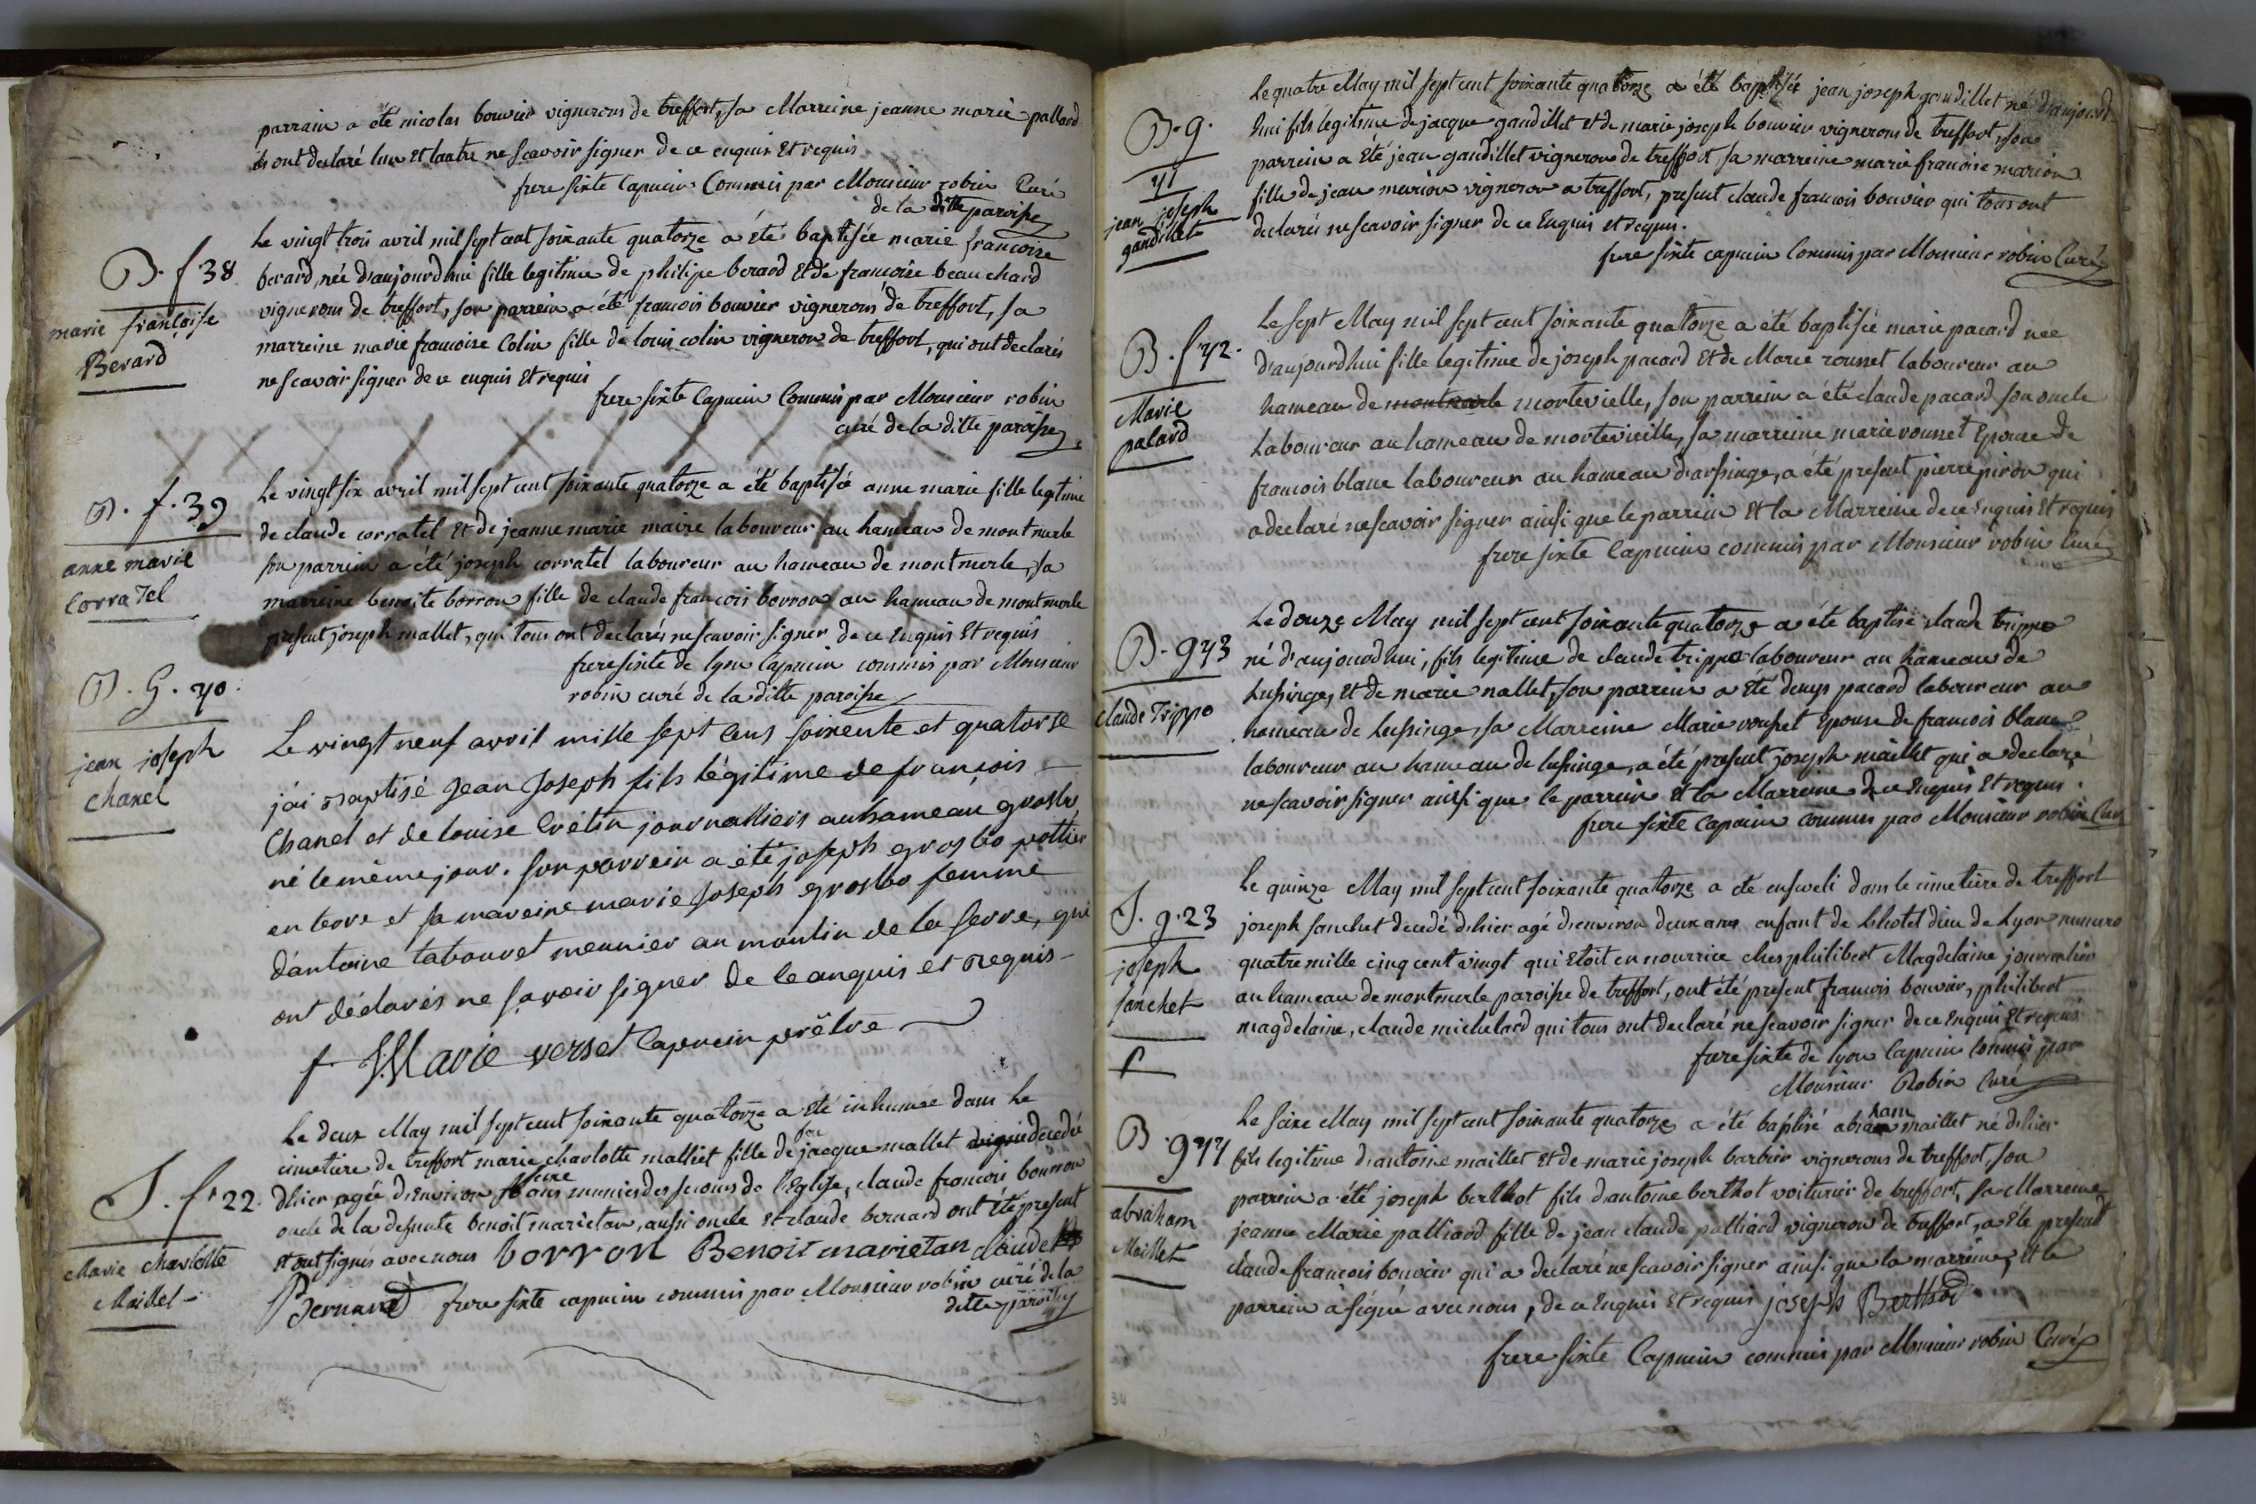 parrain a été nicolas bouvier vignerons de treffort, sa Marreine jeanne marie pallard
ont declaré lun et lautre ne scavoir signer de ce enquis et requis
frere sixte Capucin Commis par Monsieur robin Curé
de la ditte paroisse
B. f 38
marie françoise
Berard
Le vingt trois avril mil sept cent soixante quatorze a été baptisée marie francoise
berard, née d'aujourdhui fille legitime de philipe berard et de francoise beauchard
vignerons de treffort, son parrein a été francois bouvier vignerons de treffort, sa
marreine marie francoise Colin fille de louis colin vigneron de treffort, qui ont declarés
ne scavoir signer de ce enquis et requis
frere sixte Capucin Commis par Monsieur robin
curé de la ditte paroisse
B. f. 39
anne marie
Corratel
Le vingt six avril mil sept cent soixante quatorze a été baptisée anne marie fille legitime
de claude corratel et de jeanne marie maire laboureur au hameau de montmerle
son parrein a été joseph corratel laboureur au hameau de montmerle, sa
marreine benoite borron fille de claude francois borron au hameau de montmerle
present joseph mallet, qui tous ont declarés ne scavoir signer de ce enquis et requis
frere sixte de lyon Capucin commis par Monsieur
robin curé de la ditte paroisse
B. G. 40.
jean joseph
chanel
Le vingt neuf avril mille sept cens soixente et quatorse
j'ai baptisé Jean Joseph fils légitime de francois
Chanel et de louise Crétin journalliers au hameau grosbo
né le même jour. son parrein a été joseph grosbo pottier
en terre et sa mareine marie Joseph grosbo femme
d'antoine tabouret meunier au moulin de la serre, qui
ont déclarés ne savoir signer de ce anquis et requis
f. Marie verset Capucin prêtre
S. f. 22.
Marie charlotte
Maillet
Le deux May mil sept cent soixante quatorze a été inhumée dans le
cimetiere de treffort marie charlotte malliet fille de feu jacque mallet decedé
dhier agée d'environ seize ans munies des secours de l'Eglise, claude francois bourron
oncle de la defunte benoit marietan, aussi oncle et claude bernard ont été present
et ont signés avec nous borron Benoit marietan claude
Bernard frere sixte capucin commis par Monsieur robin curé de la
ditte paroisse
B. g.
41
jean joseph
gandillet
Le quatre May mil sept cent soixante quatorze a été baptisée jean joseph gandillet né d'aujourd
hui fils legitime de jacque gandillet et de marie joseph bouvier vignerons de treffort, son
parrein a été jean gandillet vigneron de treffort, sa marreine marie francoise marion
fille de jean marion vigneron a treffort, present claude francois bouvier qui tous ont
declarés ne scavoir signer de ce Enquis et requis.
frere sixte capucin Commis par Monsieur robin Curé
B. f 42.
Marie
pacard
Le sept May mil sept cent soixante quatorze a été baptisée marie pacard née
d'aujourdhui fille legitime de joseph pacard et de Marie rousset laboureur au
hameau de mortevielle, son parrein a été claude pacard son oncle
Laboureur au hameau de mortevieille, sa marreine marie rousset Epouse de
francois blanc laboureur au hameau d'arsinge, a été present pierre piron qui
a declaré ne scavoir signer ainsi que le parrein et la Marreine de ce Enquis et requis
frere sixte Capucin commis par Monsieur robin Curé
B. g 43
claude Trippo
Le douze May mil sept cent soixante quatorze a été baptisé claude trippo
né d'aujourdhui, fils legitime de claude trippo laboureur au hameau de
Lusinge, et de marie nallet, son parrein a été denys pacard laboureur au
hameau de Lusinge, sa Marreine Marie rousset Epouse de francois blanc
laboureur au hameau de lusinge, a été present joseph maillet qui a declaré
ne scavoir signer ainsi que le parrein et la Marreine de ce Enquis et requis.
frere sixte Capucin commis par Monsieur robin Curé
S. g. 23
joseph
janchet
Le quinze May mil sept cent soixante quatorze a été enseveli dans le cimetiere de treffort
joseph janchet decedé dhier agé d'environ deux ans enfant de Lhotel dieu de Lyon numero
quatre mille cinq cent vingt qui étoit en nourrice ches philibert Magdelaine journalier
au hameau de montmerle paroisse de treffort, ont été present francois bouvier, philibert
magdelaine, claude michelard qui tous ont declaré ne scavoir signer de ce Enquis et requis
frere sixte de lyon Capucin Commis par
Monsieur Robin Curé
B. g 44
abraham
Maillet
Le seize May mil sept cent soixante quatorze a été baptisé abraham maillet né dhier
fils legitime d'antoine maillet et de marie joseph barbier vignerons de treffort, son
parrein a été joseph berthot fils d'antoine berthot voiturier de treffort, sa Marreine
jeanne Marie palliard fille de jean claude palliard vigneron de treffort, a été present
claude francois bouvier qui a declaré ne scavoir signer ainsi que la marreine, et le
parrein a signé avec nous, de ce Enquis et requis joseph Berthod
frere sixte Capucin commis par Monsieur robin Curé
34